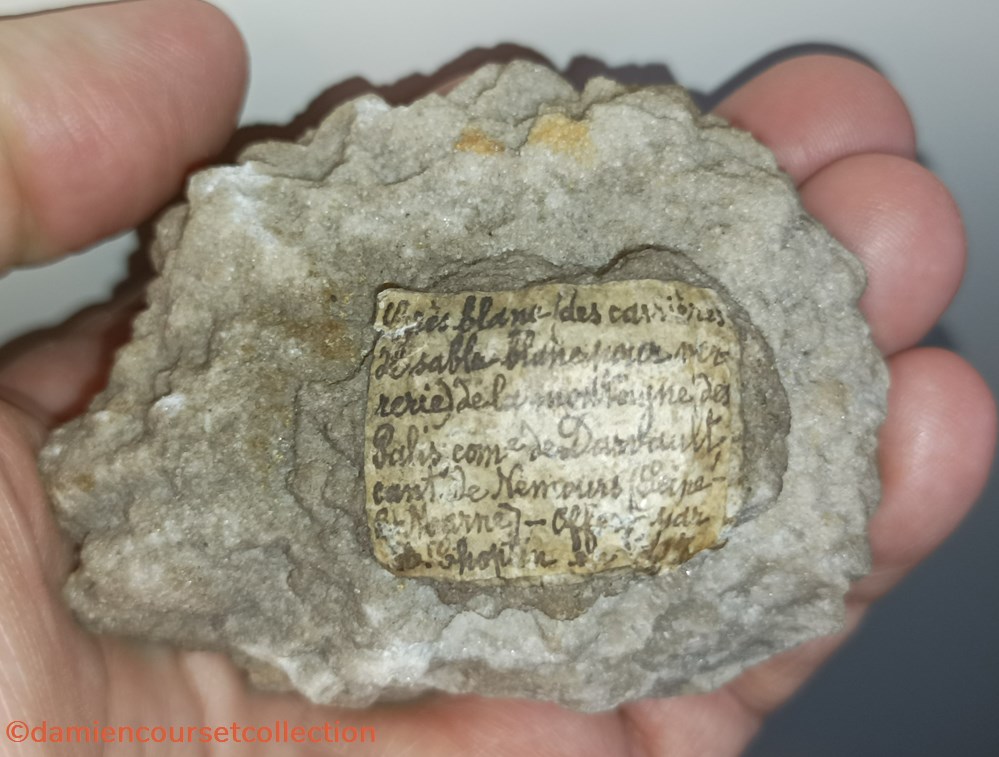 Grès blanc (des carrières
de sable blanc pour ver-
rerie) de la montaigne des
Palis, com.ᵉ de Darvault,
cant. de Nemours (Seine-
et-Marne) — Offert par
©damiencoursetcollection